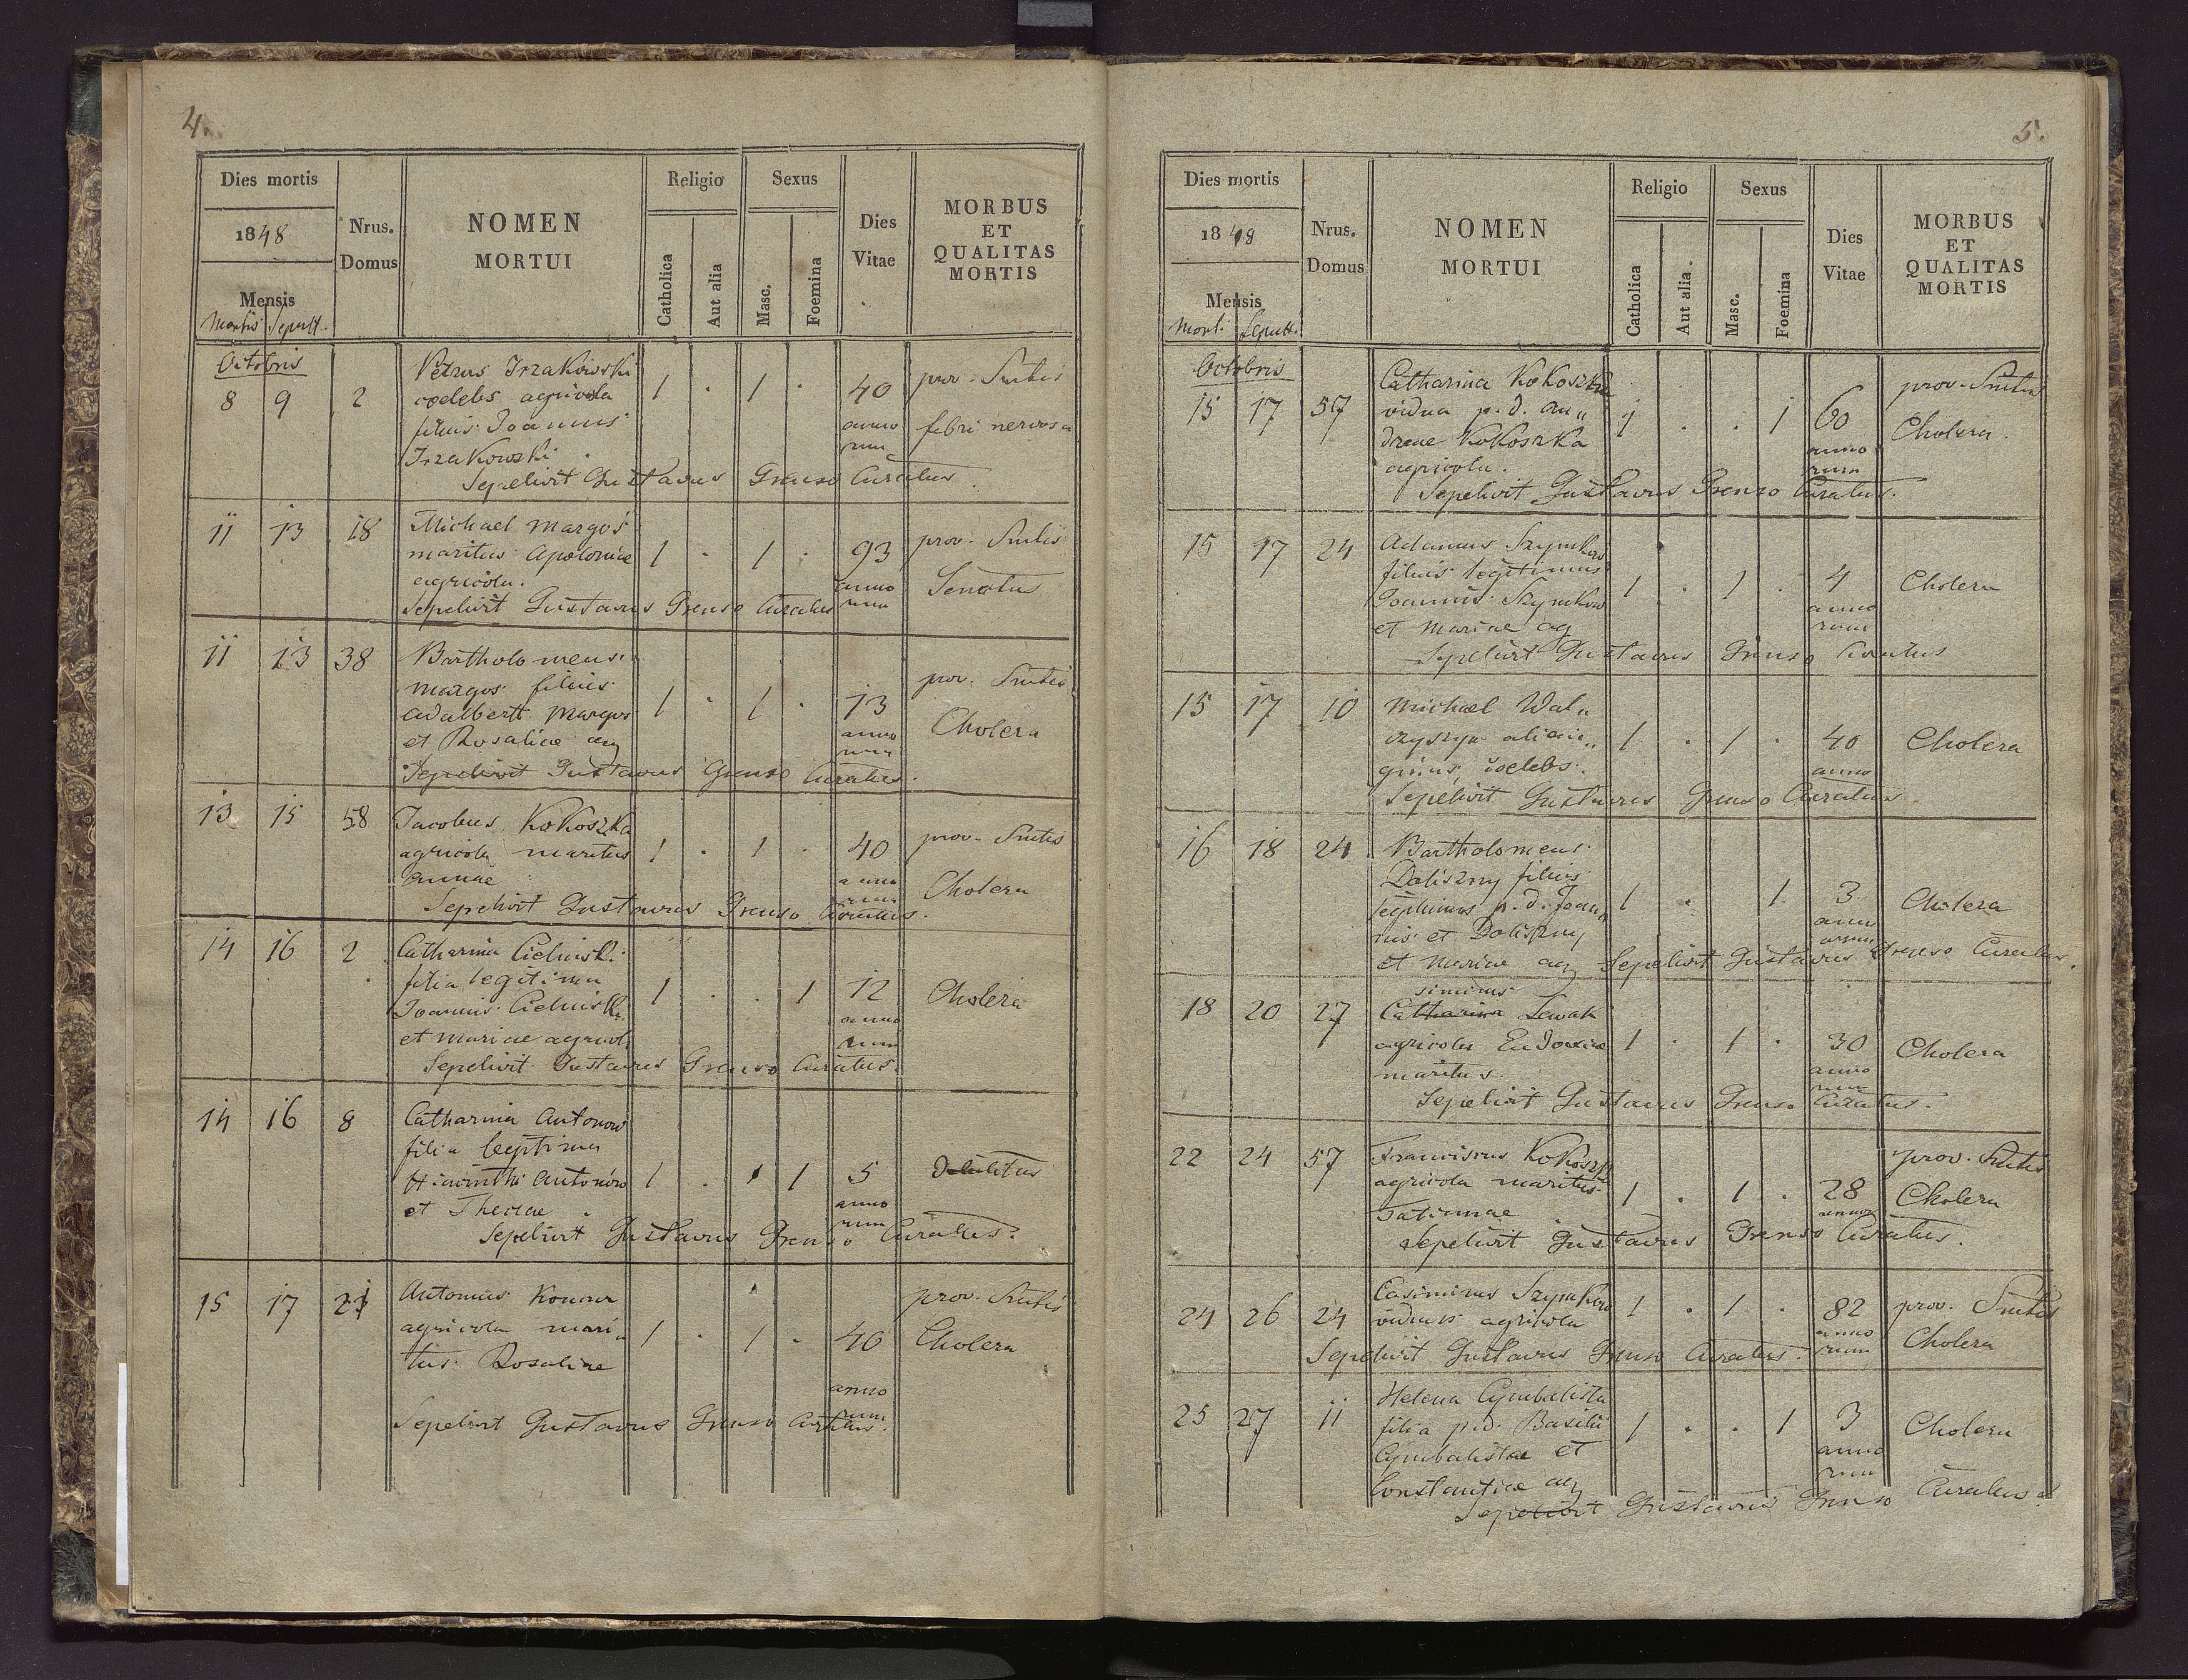 4.
Dies mortis
1848
Mensis
Mortis Sepult.
Nrus.
Domus
NOMEN
MORTUI
Religio
Catholica
Aut alia
Sexus
Masc.
Foemina
Dies
Vitae
MORBUS
ET
QUALITAS
MORTIS
Octobris
8 9 2 Petrus Irzakowski 1 . 1 . 40 prov.
coelebs agricola
filius Joannis anno febri nervosa
Irzakowski rum
Sepelivit Gustavus Grenso Curatus.
11 13 18 Michael Margos 1 . 1 . 93 prov.
maritus Apoloniae
agricola. anno
Sepelivit Gustavus Grenso Curatus rum
11 13 38 Bartholomeus
Margos filius prov.
Adalberti Margos 1 . 1 . 13
et Rosaliae ag anno rum Cholera
Sepelivit Gustavus Grenso Curatus.
13 15 58 Jacobus Kokoszka
agricola maritus 1 . 1 . 40 prov.
Annae anno rum Cholera
Sepelivit Gustavus Grenso Curatus.
14 16 2 Catharina
filia legitima 1 . . 1 12 Cholera
Joannis
et Mariae agricol. anno rum
Sepelivit Gustavus Grenso Curatus.
14 16 8 Catharina Antonow
filia legitima
Hiacinthi Antonów 1 . 1 5 debilitas
et Theclae anno rum
Sepelivit Gustavus Grenso Curatus.
15 17 Antonius prov.
agricola mari„ 1 . 1 . 46 Cholera
tus Rosaliae
anno rum
Sepelivit Gustavus Grenso Curatus.
5.
Dies mortis
1848
Mensis
Mort. Sepult.
Nrus.
Domus
NOMEN
MORTUI
Religio
Catholica
Aut alia.
Sexus
Masc.
Foemina
Dies
Vitae
MORBUS
ET
QUALITAS
MORTIS
Octobris
15 17 57 Catharina Kokoszka prov.
vidua p. d. An„ 1 . . 1 60
dreae Kokoszka anno rum Cholera.
agricola.
Sepelivit Gustavus Grenso Curatus.
15 17 24 Adamus Szymkow
filius legitimus 1 . 1 . 4 Cholera
Joannis Szymkow anno
et Mariae ag rum
Sepelivit Gustavus Grenso Curatus
15 17 10 Michael Wal„
czyszyn alieni„ 1 . 1 . 40 Cholera
genus, coelebs. anno
Sepelivit Gustavus Grenso Curatus
16 18 24 Bartholomeus
Doliszny filius
legitimus p. d. Joan„ 1 . 1 3 Cholera
nis et Doliszny
et Mariae ag Sepelivit Gustavus Grenso Curatus.
simirus
18 20 27 Catharina Lewak
agricola Eudoxiae 1 . 1 . 30 Cholera
maritus. anno rum
Sepelivit Gustavus Grenso Curatus.
22 24 57 Franciscus Kokoszka prov.
agricola maritus 1 . 1 . 28 Cholera
Tatianae
Sepelivit Gustavus Grenso Curatus.
24 26 24 Casimirus Szymkow 1 . 1 . 82 prov.
viduus agricola anno rum Cholera
Sepelivit Gustavus Grenso Curatus.
25 27 11 Helena Cymbalista
filia p. d. Basilii 1 . . 1 3 Cholera
Cymbalistae et anno
Constantiae ag rum
Sepelivit Gustavus Grenso Curatus